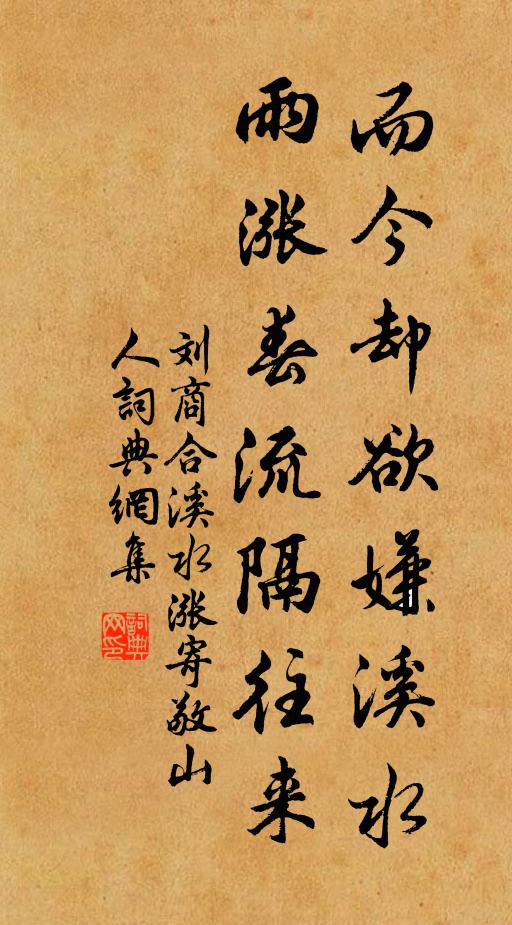 而今却欲嫌溪水
雨漲春流隔往来
刘商合溪水漲寄敬山
人詞典網集
詞典網印